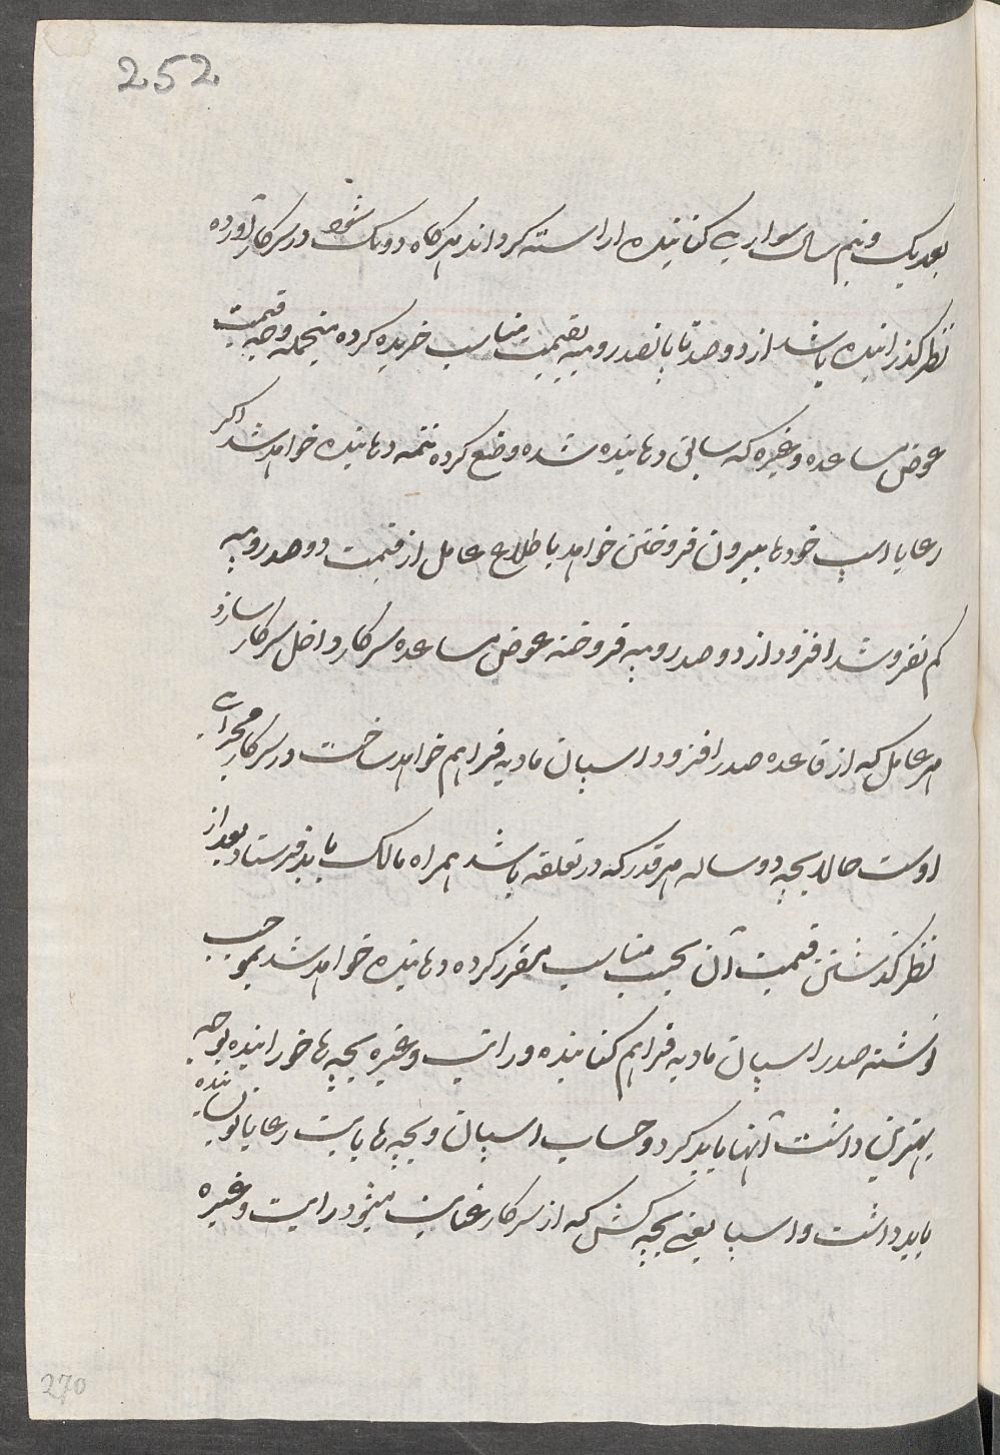 252
بعد یک و نیم سال سواری کنانیده اراسته کرداند هرکاه دویک شود در سرکار آورده
نظر کذرانیده باشد از دوصد تا پانصد روپیه بقیمت مناسب خریده کرده منجمله وجه قیمت
عوض مساعده وغیره که سابق دهانیده شده وضع کرده تتمه دهانیده خواهد شد اکر
رعایا اسپ خودها بیرون فروختن خواهد باطلاع عامل از قیمت دوصد روپیه
کم نفروشد افزود از دوصد روپیه فروخته عوض مساعده سرکار داخل سرکار سازد
هر عامل که از قاعده صدر افزود اسپان مادیه فراهم خواهد ساخت در سرکار مجرای
اوست حالا بچه دوساله هر قدر که در تعلقه باشد همراه مالک باید فرستاد بعد از
نظر کذشتن قیمت آن بحسب مناسب مقرر کرده دهانیده خواهد شد بموجب
نوشته صدر اسپان مادیه فراهم کنانیده وراتب وغیره بچه ها خورانیده بوجه
بهترین داشت آنها باید کرد و حساب اسپان و بچه ها بابت رعایا نویسانیده
باید داشت و اسپا یعنے بچه کش که از سرکار عنایت میشود راتب وغیره
270